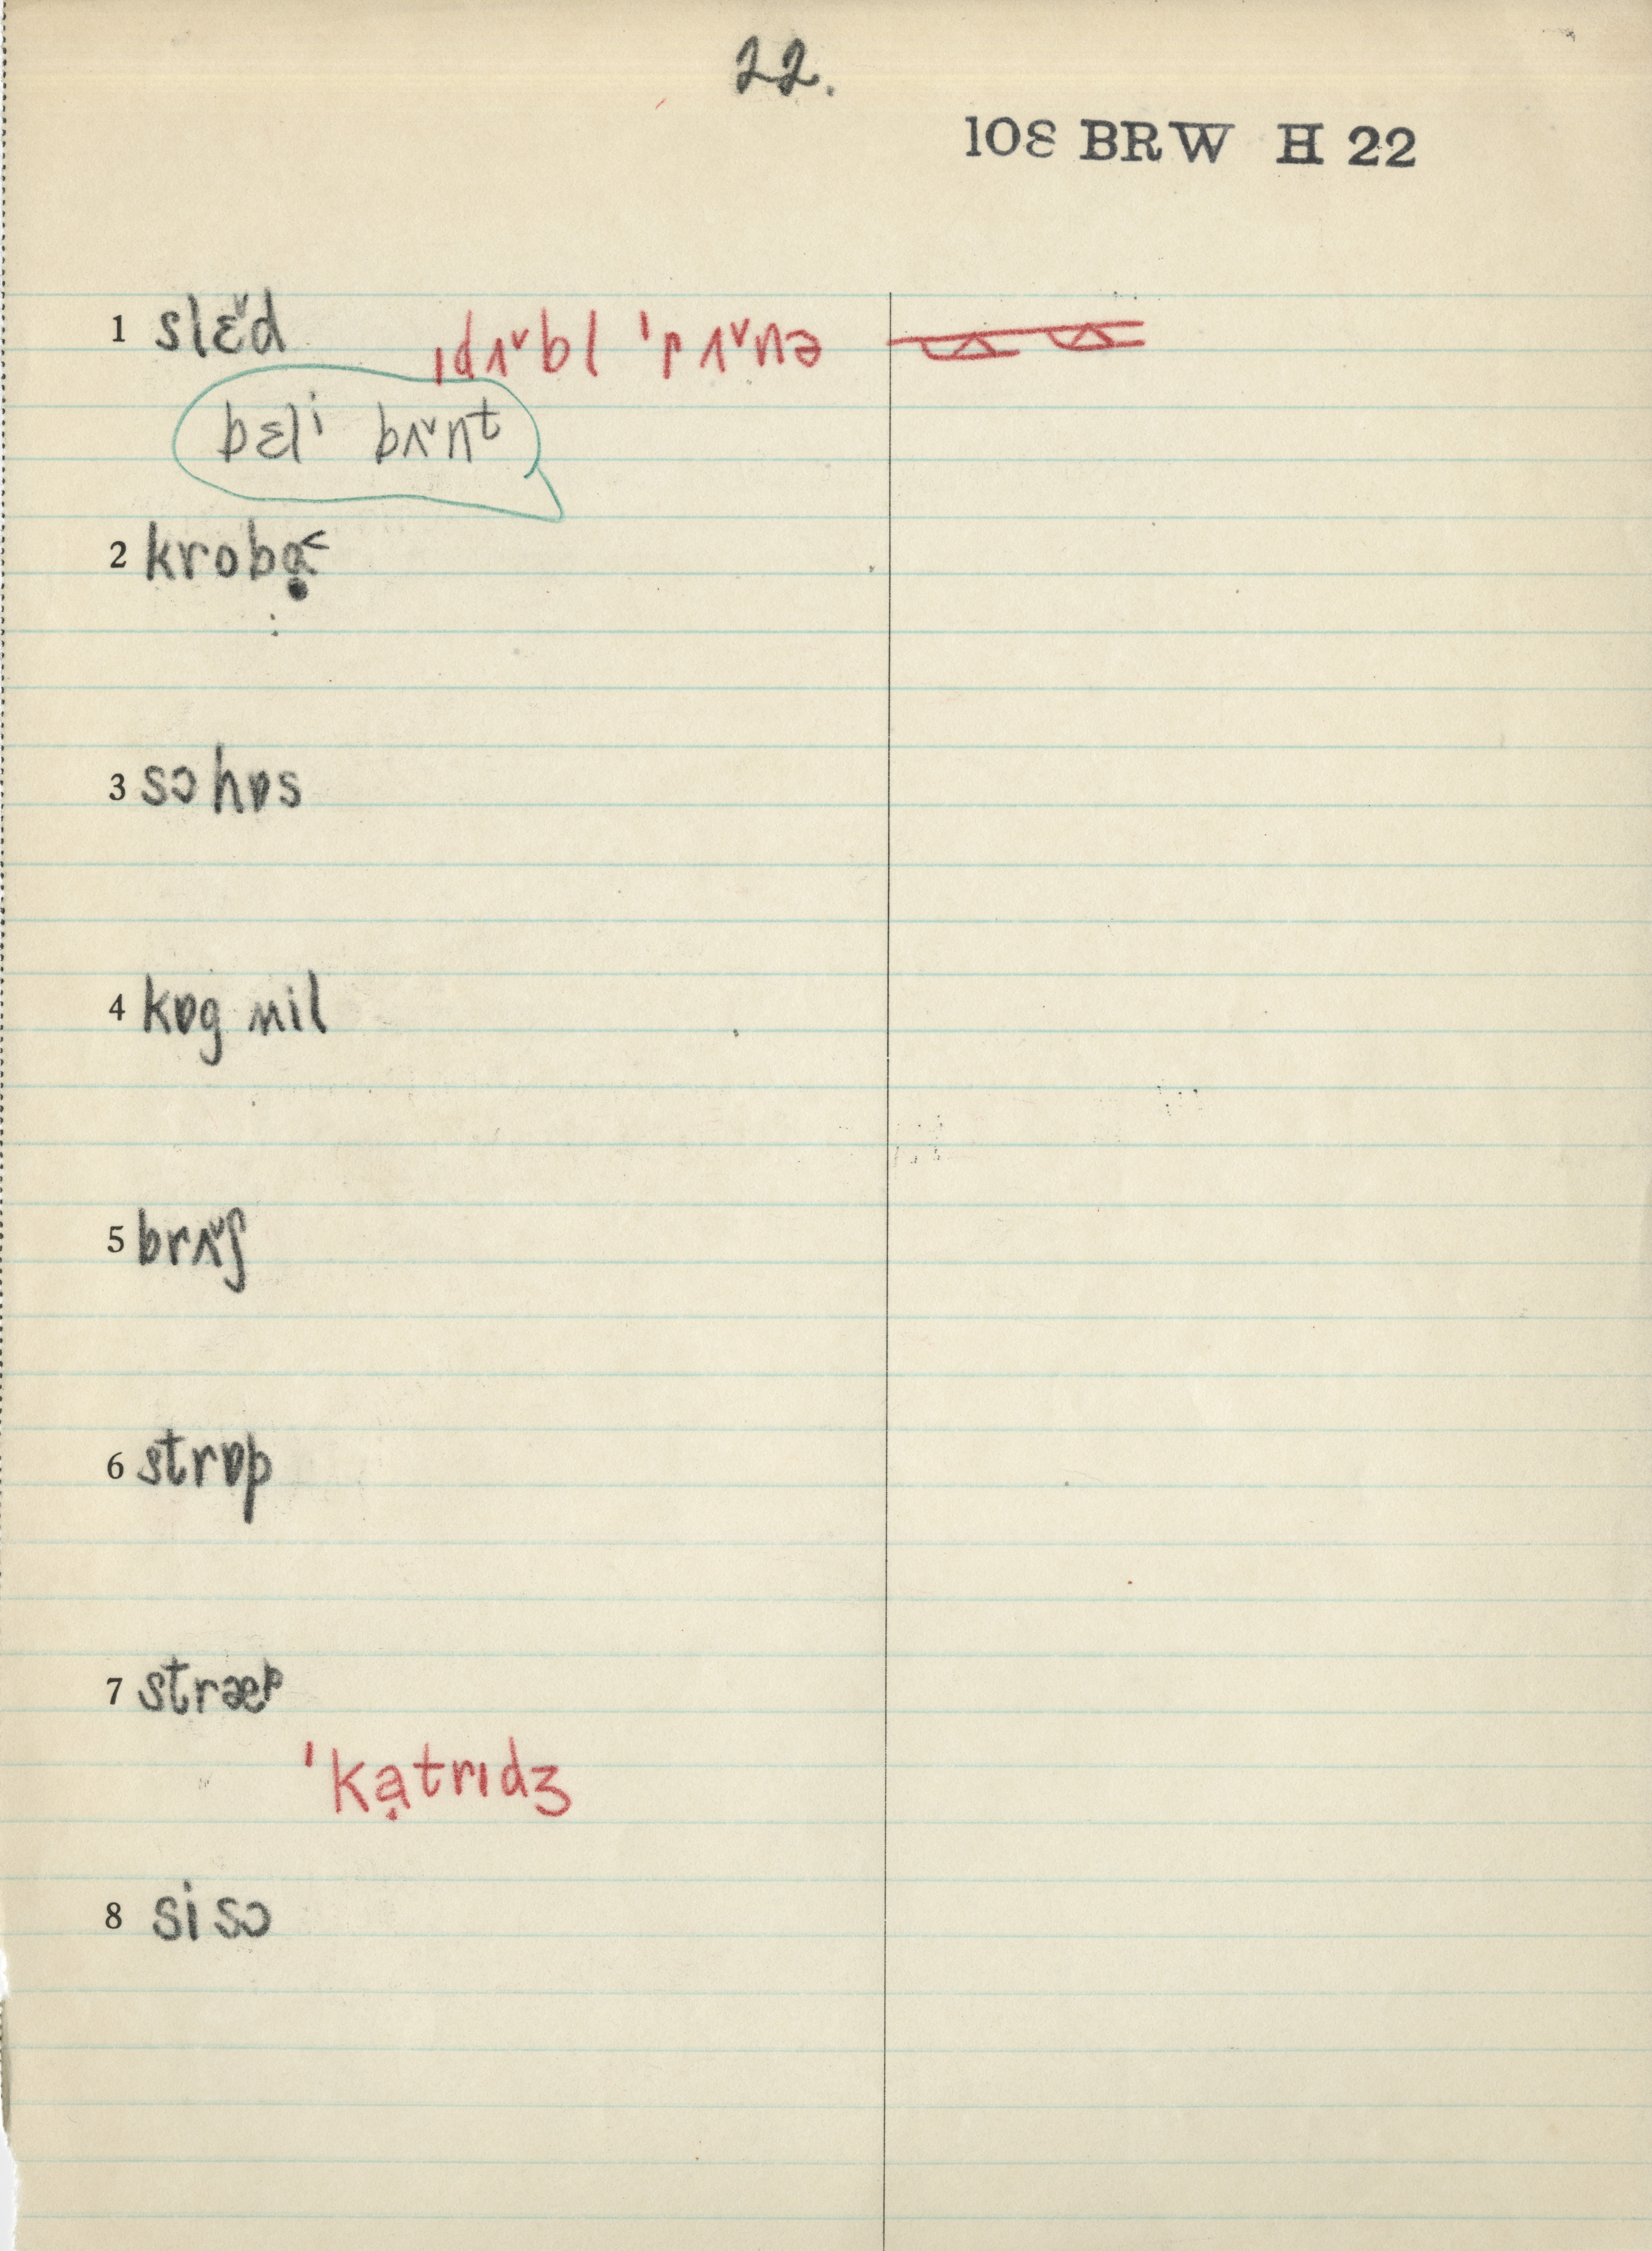 22.
108 BRW H 22
1 slɛ˅d ˌdʌ˅bl ˈrʌ˅nə
bɛlⁱ bʌ˅nt
2 krobɑ̣˂
3 sɔhɒs
4 kɒg nil
5 brʌ˅ʃ
6 strɒp
7 stræᵖ
ˈkạtrɪdʒ
8 sisɔ